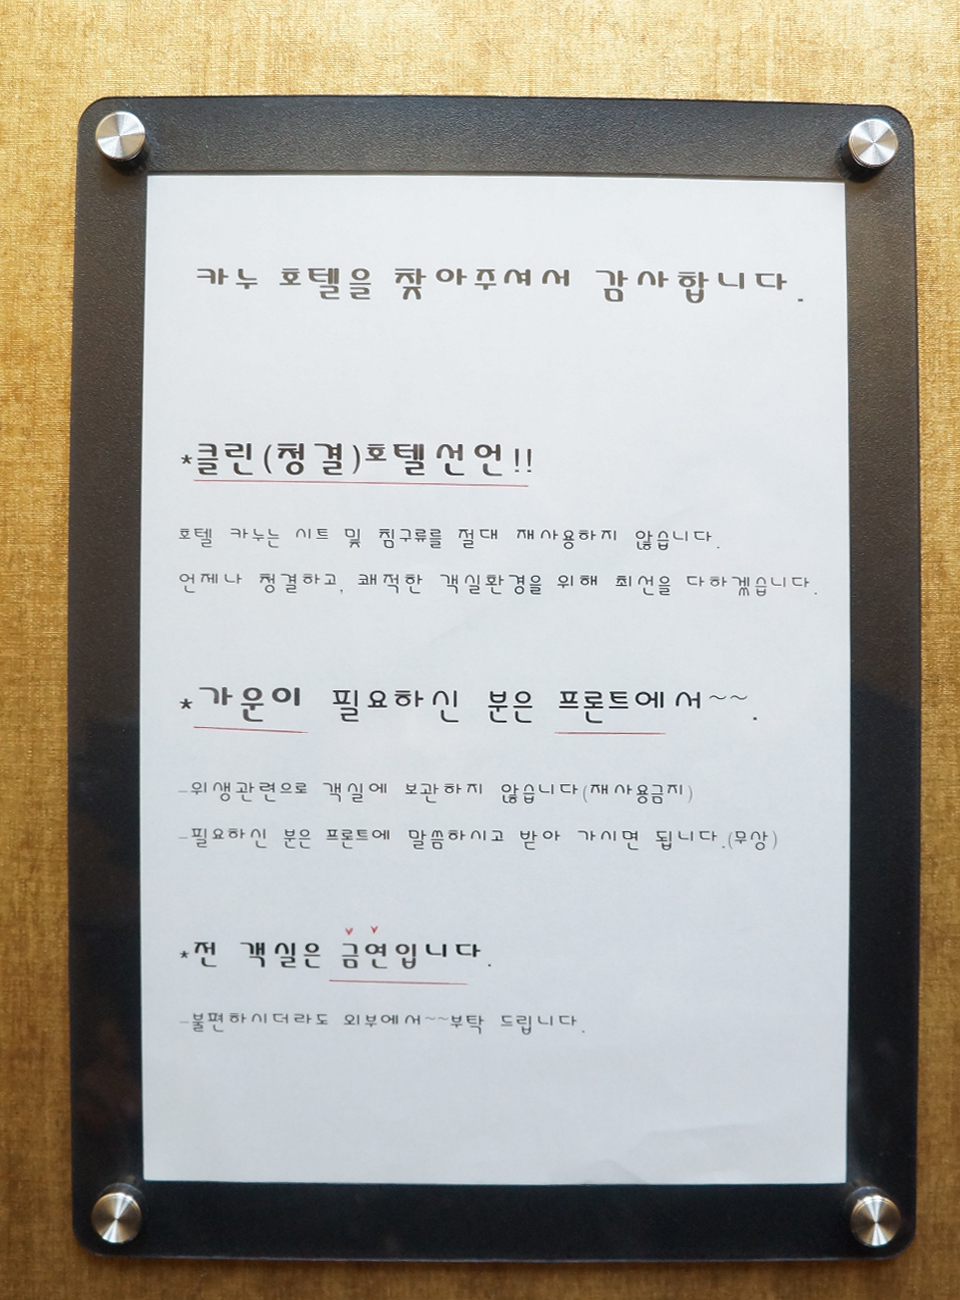 카누 호텔을 찾아주셔서 감사합니다.
*클린(청결)호텔선언!!
호텔 카누는 시트 및 침구류를 절대 재사용하지 않습니다.
언제나 청결하고, 쾌적한 객실환경을 위해 최선을 다하겠습니다.
*가운이 필요하신 분은 프론트에서~~.
-위생관련으로 객실에 보관하지 않습니다(재사용금지)
-필요하신 분은 프론트에 말씀하시고 받아 가시면 됩니다.(무상)
*전 객실은 금연입니다.
-불편하시더라도 외부에서~~부탁 드립니다.